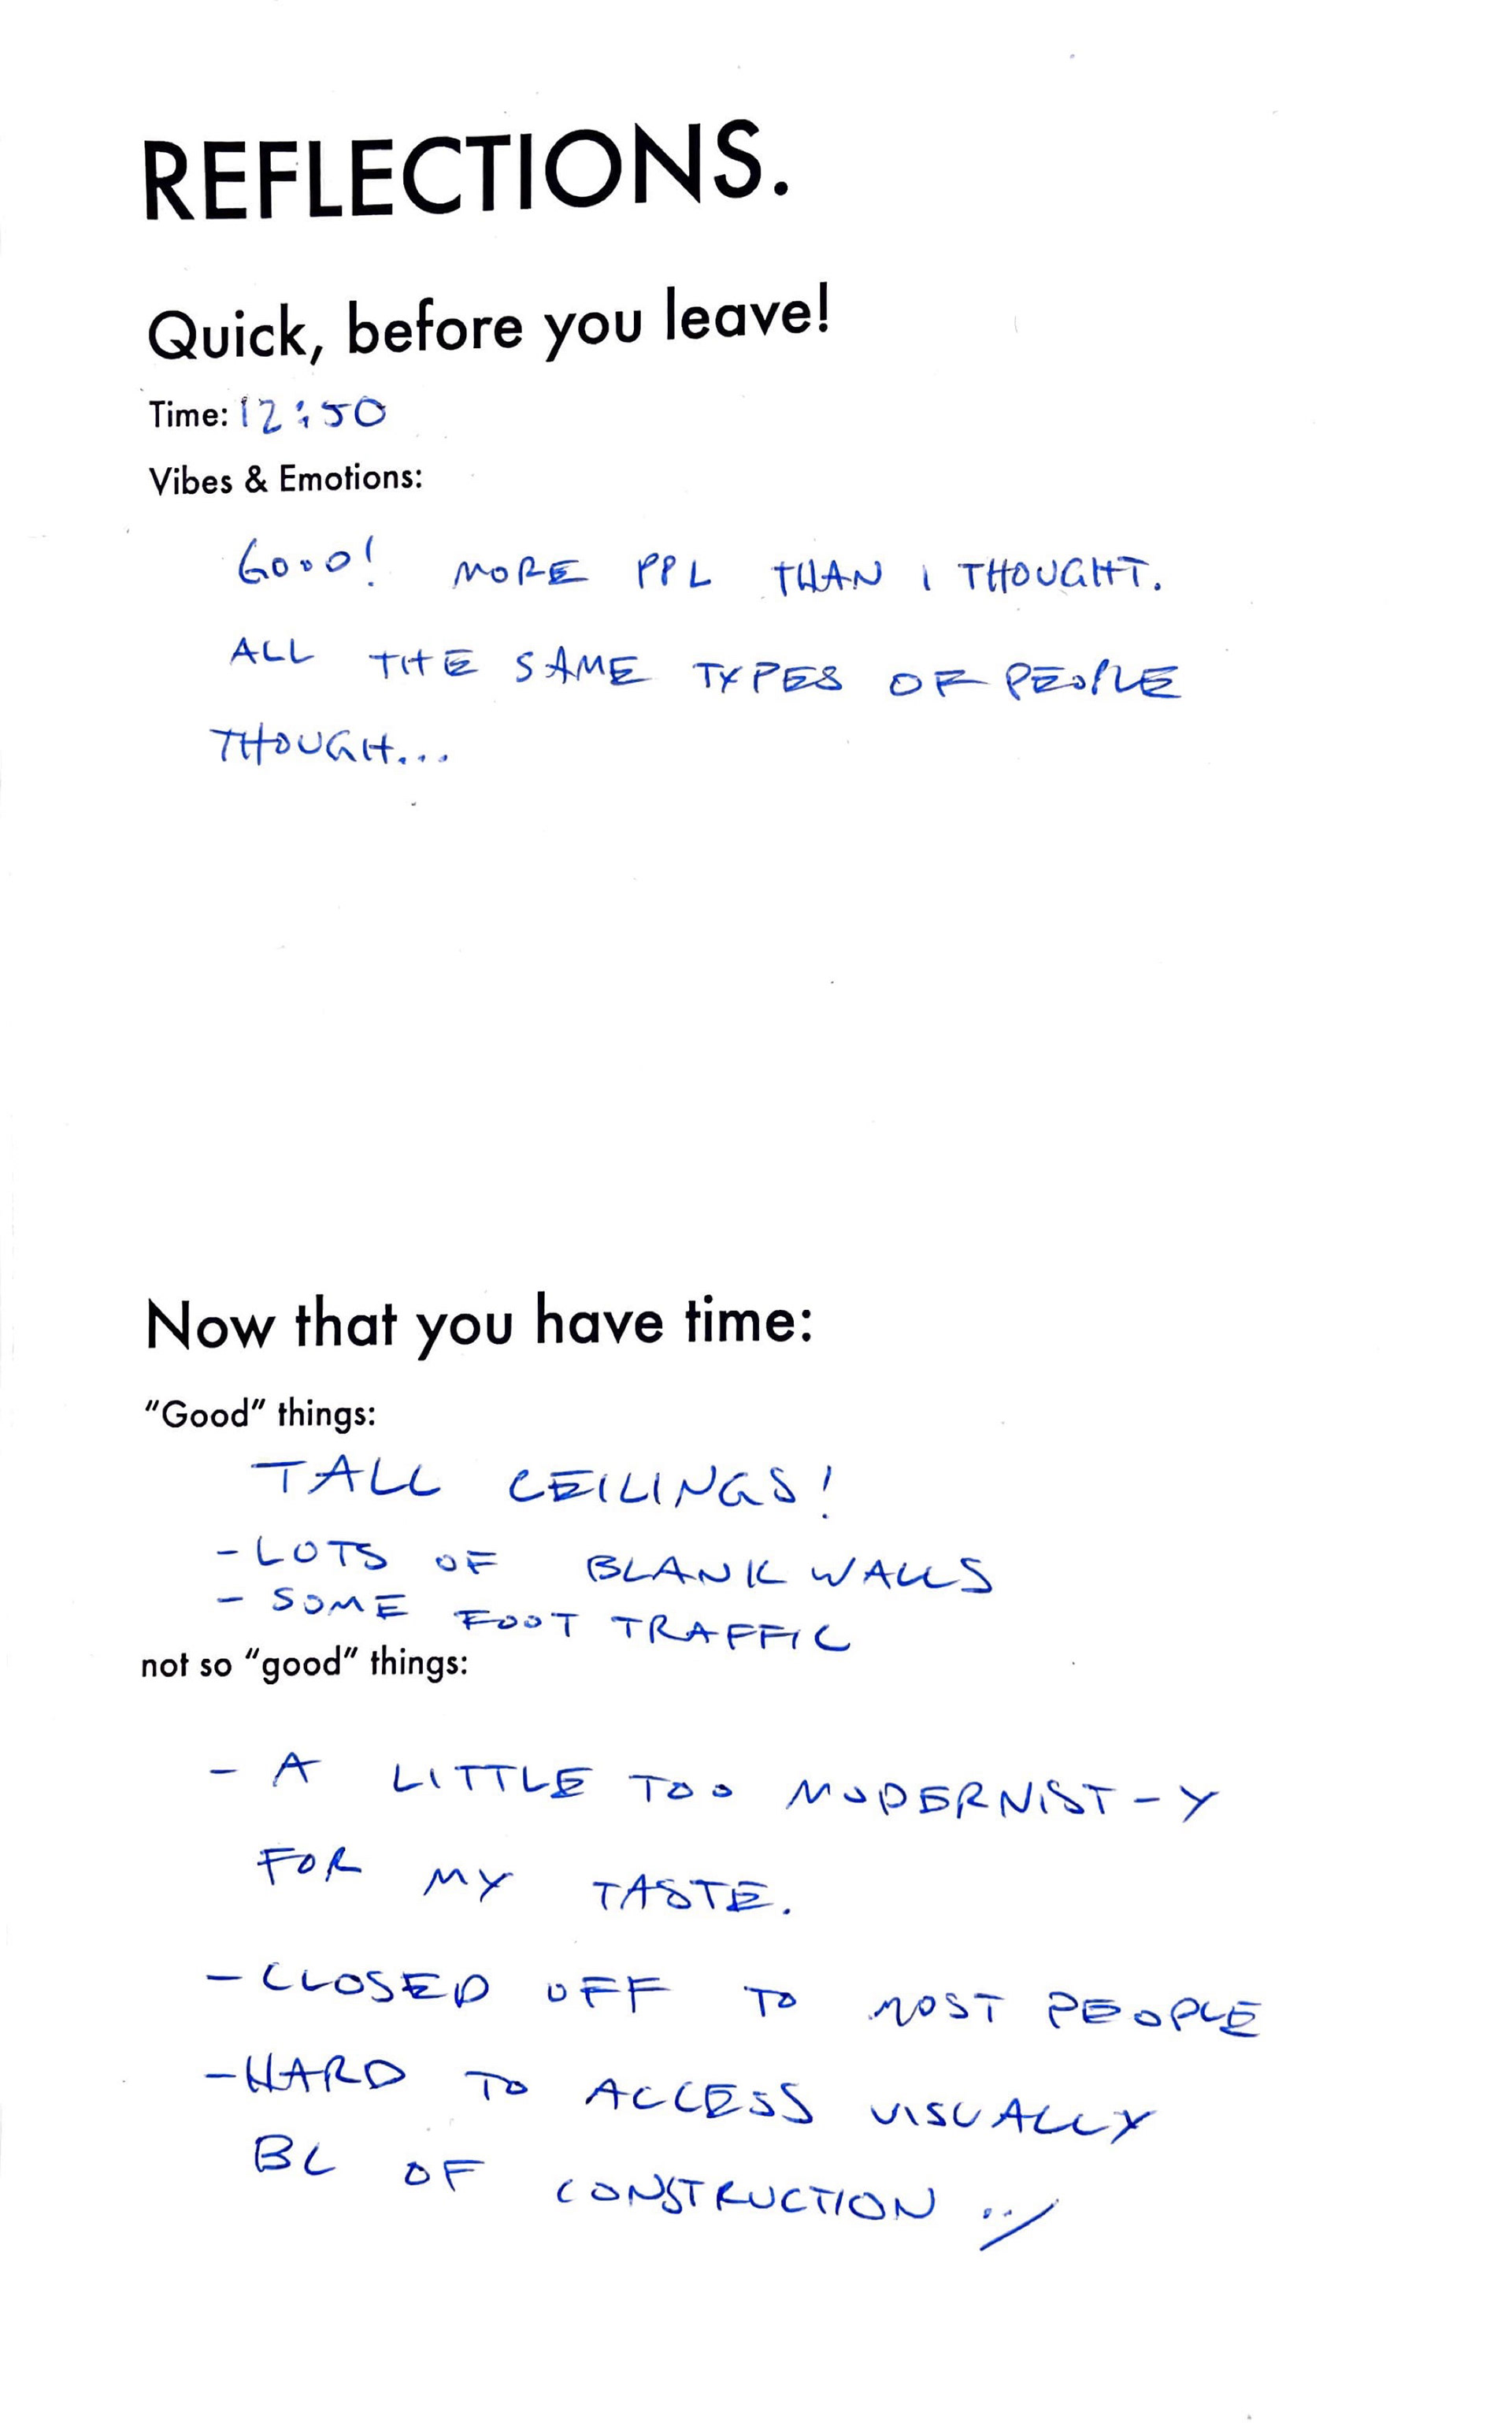 REFLECTIONS.
Quick, before you leave!
Time: 12:50
Vibes & Emotions:
GOOD! MORE PPL THAN I THOUGHT.
ALL THE SAME TYPES OF PEOPLE
THOUGH...
Now that you have time:
"Good" things:
TALL CEILINGS!
- LOTS OF BLANK WALLS
- SOME FOOT TRAFFIC
not so "good" things:
- A LITTLE TOO MODERNIST-Y
FOR MY TASTE.
- CLOSED OFF TO MOST PEOPLE
- HARD TO ACCESS VISUALLY
BC OF CONSTRUCTION :/